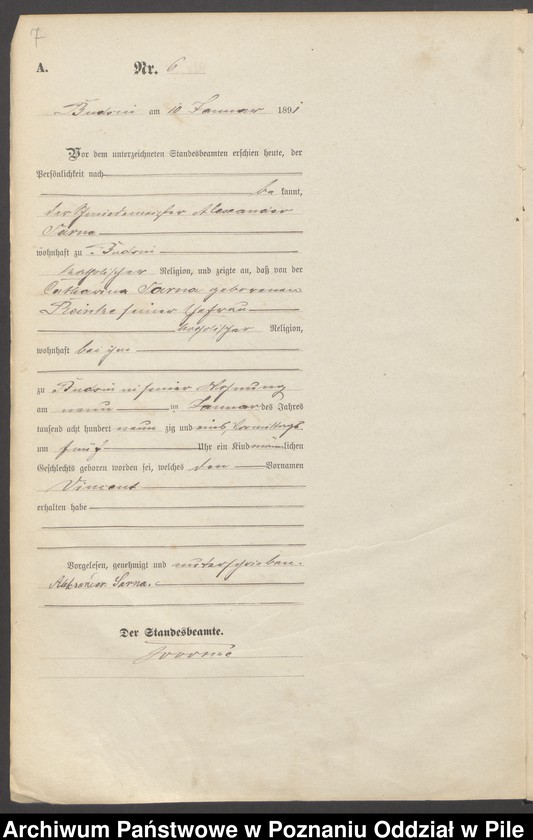 7
A. Nr. 6
am 10 Januar 1891
Vor dem unterzeichneten Standesbeamten erschien heute, der
Persönlichkeit nach
be kannt,
der Schmiedemeister Alexander
Sarna
wohnhaft zu
katholischer Religion, und zeigte an, daß von der
Catharina Sarna geborenen
Reinke seiner Ehefrau
katholischer Religion,
wohnhaft bei ihm
zu in seiner Wohnung
am neun ten Januar des Jahres
tausend acht hundert neun zig und eins, Vormittags
um fünf Uhr ein Kind männlichen
Geschlechts geboren worden sei, welches den Vornamen
Vincent
erhalten habe
Vorgelesen, genehmigt und unterschrieben.
Sarna.
Der Standesbeamte.
Archiwum Państwowe w Poznaniu Oddział w Pile